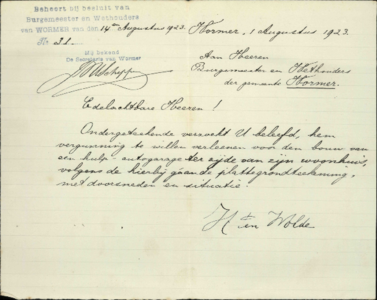 Behoort bij besluit van
Burgemeester en Wethouders
van WORMER van den 14en Augustus 1923.
No 31.
Mij bekend
De Secretaris van Wormer
Wormer, 1 Augustus 1923.
Aan Heeren
Burgemeester en Wethouders
der gemeente Wormer.
Edelachtbare Heeren!
Ondergeteekende verzoekt U beleefd, hem
vergunning te willen verleenen voor den bouw van
een hulp-autogarage ter zijde van zijn woonhuis,
volgens de hierbij gaande plattegrondteekening,
met doorsneden en situatie.
H ten Wolde